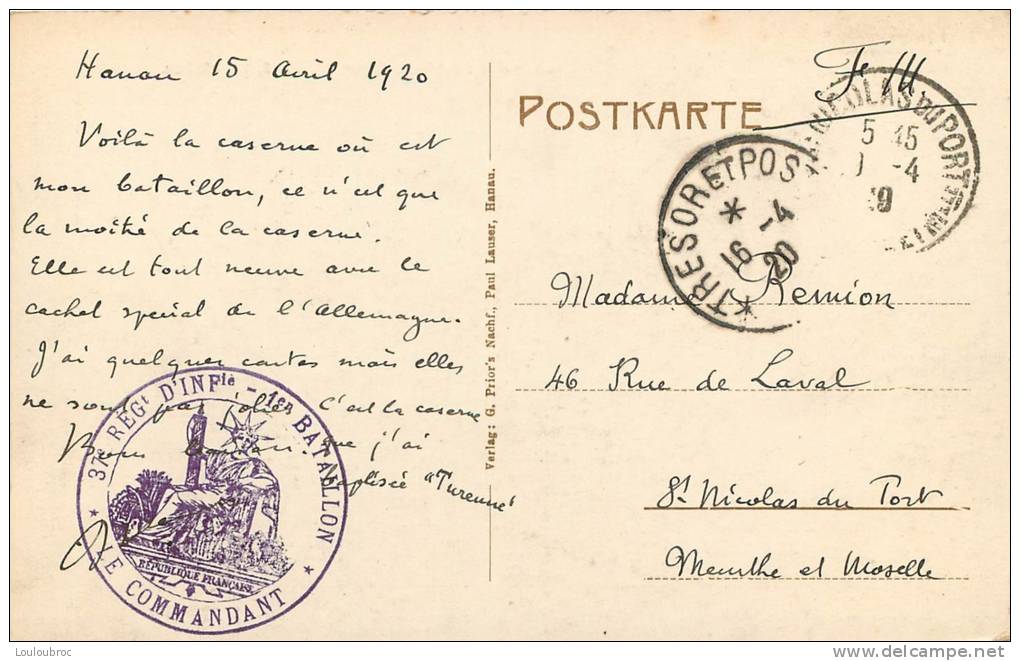 Hanau 15 Avril 1920
Voilà la caserne où est
mon bataillon, ce n'est que
la moitié de la caserne.
Elle est tout neuve avec le
cachet spécial de l'Allemagne.
J'ai quelques cartes mais elles
ne sont pas jolies C'est la caserne
que j'ai
baptisée "Turenne"
37e REGt D'INFie - 1er BATAILLON
LE COMMANDANT
REPUBLIQUE FRANCAISE
Verlag: G. Prior's Nachf., Paul Lauser, Hanau.
POSTKARTE
F.M.
TRESOR ET POS
16 -4
20
NICOLAS DU PORT
5 45
-4
Madame Remion
46 Rue de Laval
St Nicolas du Port
Meurthe et Moselle
Louloubroc
www.delcampe.net